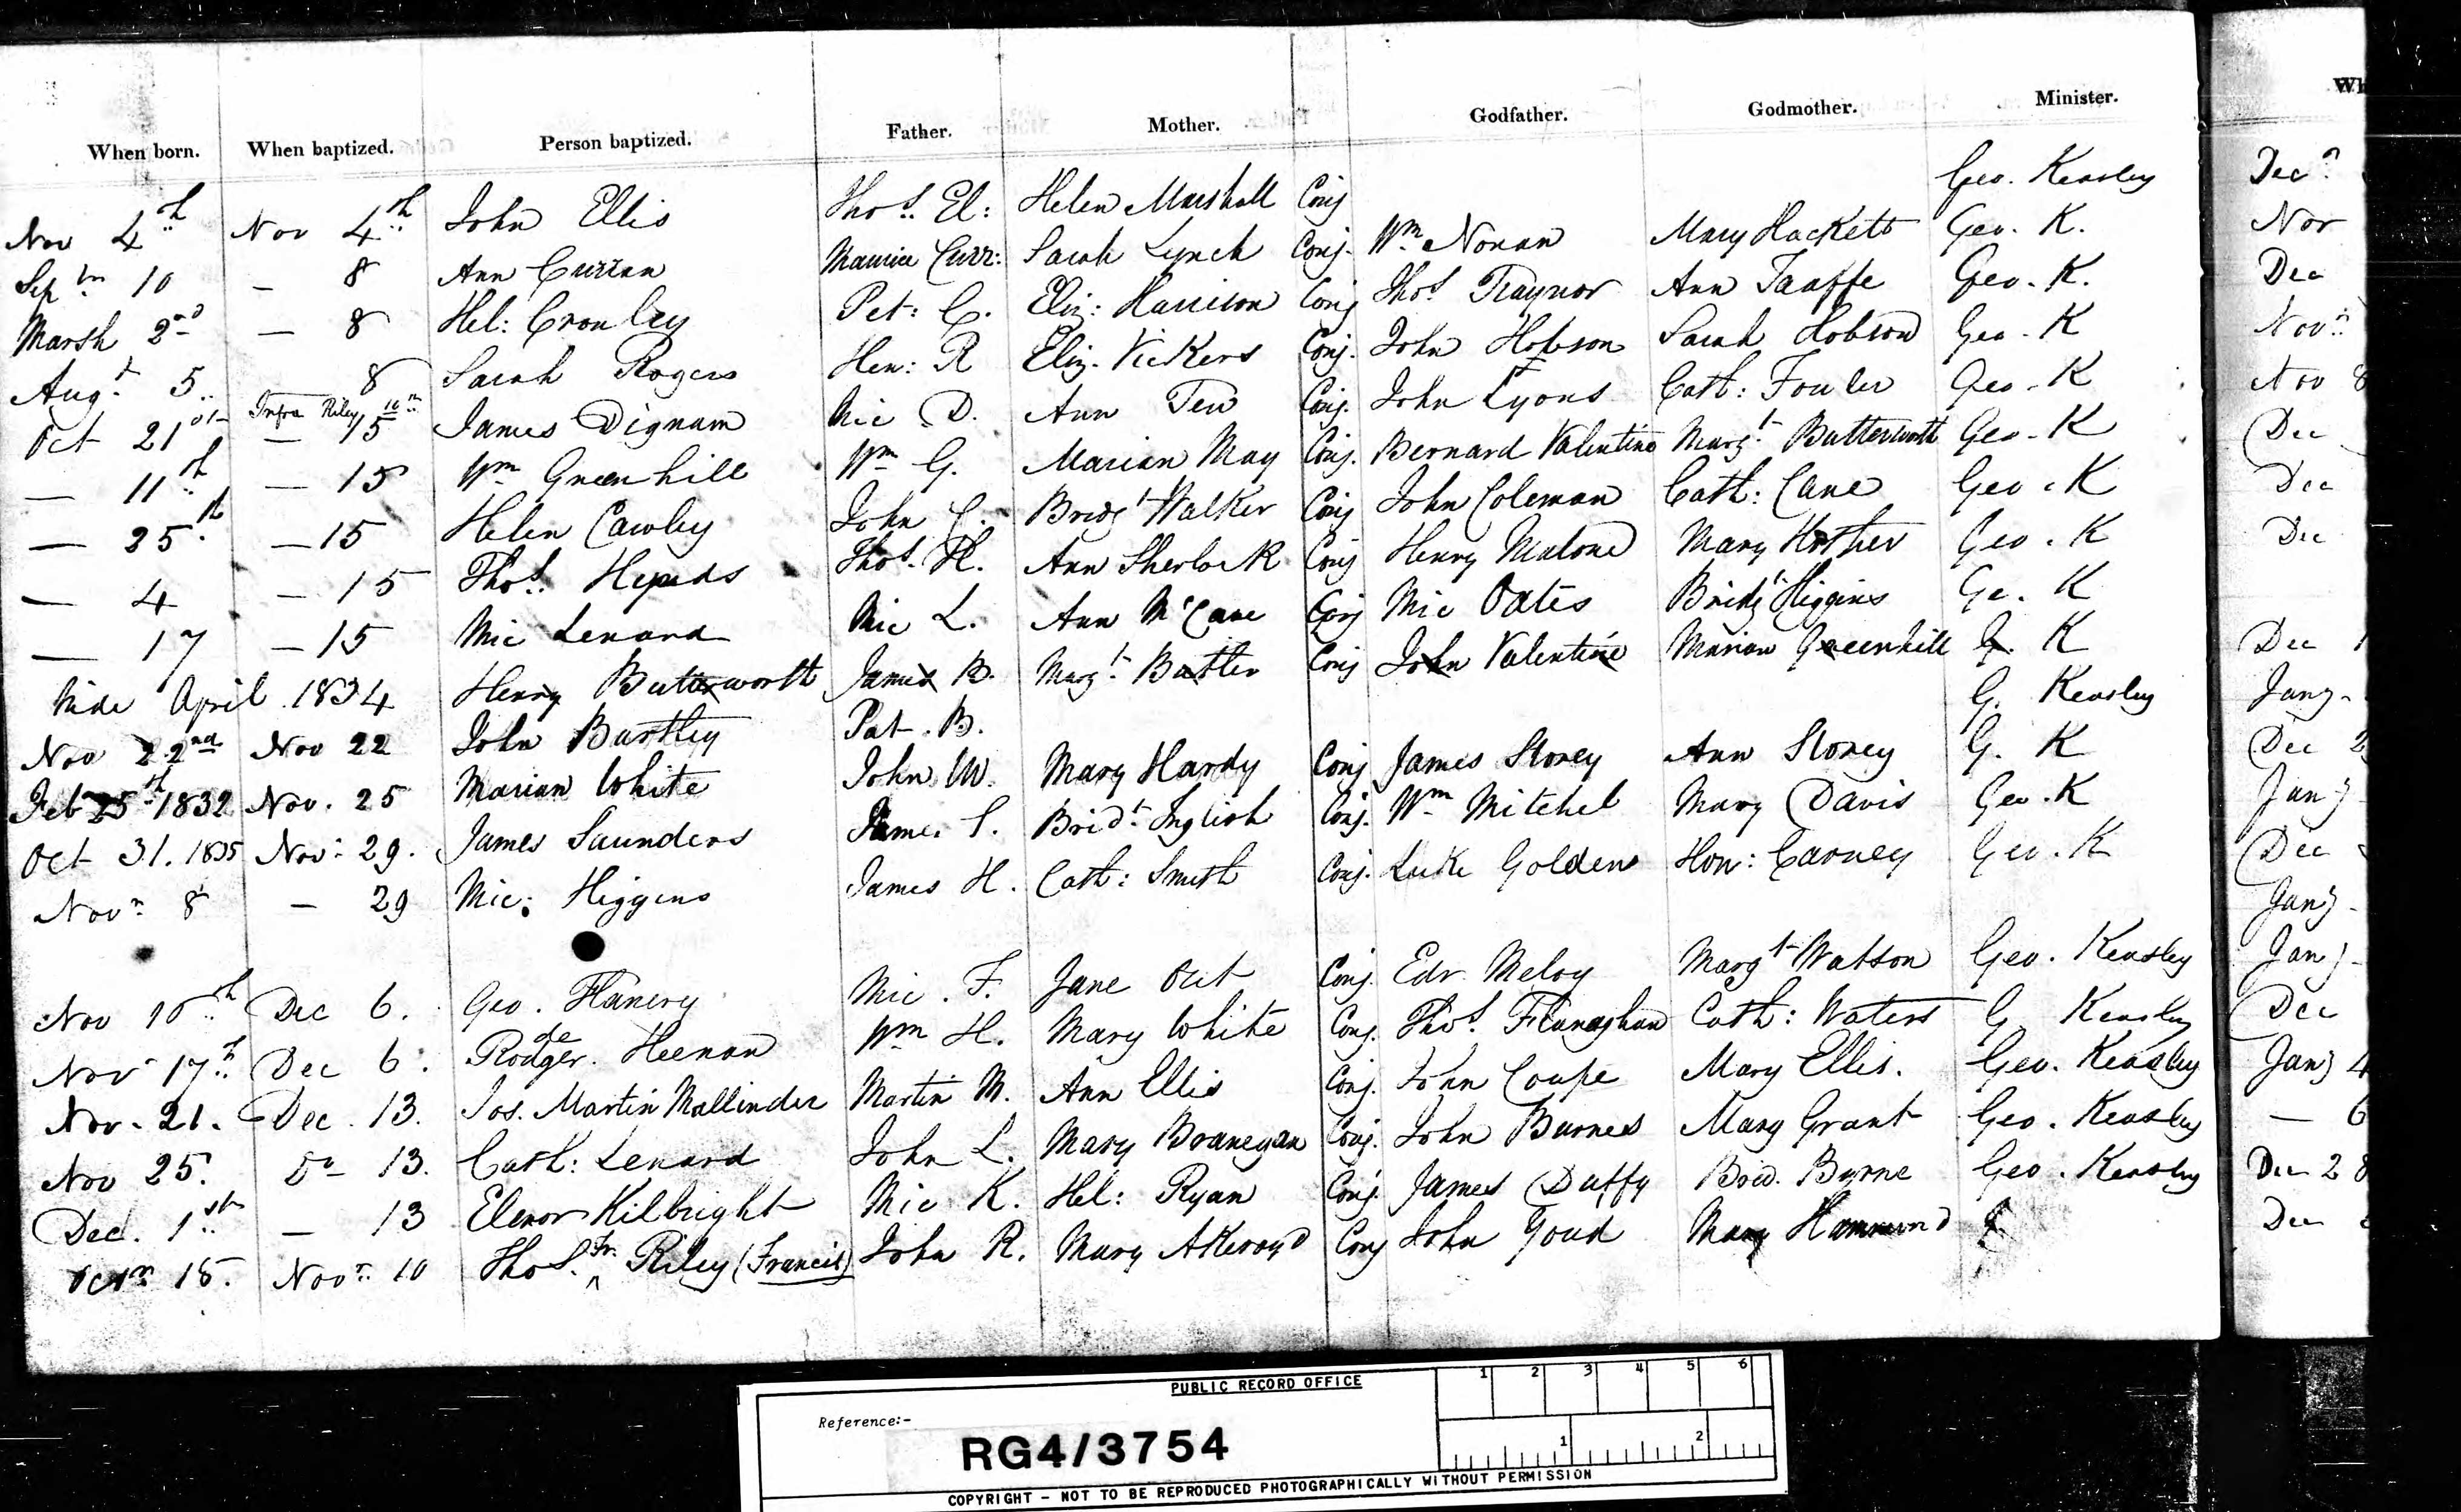 When born. When baptized. Person baptized. Father. Mother. Godfather. Godmother. Minister. Wh
Nov 4th Nov 4th John Ellis Thos. El: Helen Marshall Conj Geo. Keasley
Sepbr 10 — 8 Ann Curran Maurice Curr: Sarah Lynch Conj. Wm Nonan Mary Hackett Geo. K.
Marsh 2nd — 8 Hel: Cronley Pet: C. Eliz: Harrison Conj Thos. Traynor Ann Taaffe Geo. K.
Augt 5. 8 Sarah Rogers Hen: R Eliz. Vickers Conj. John Hobson Sarah Hobson Geo. K
Infra Riley
Oct 21st — 15 James Dignam Mic D. Ann Tew Conj. John Lyons Cath: Fowler Geo. K
— 11th — 15 Wm Greenhill Wm G. Marian May Conj. Bernard Valentine Margt Butterworth Geo. K
— 25th — 15 Helen Cawley John C. Bridgt Walker Conj John Coleman Cath: Cane Geo. K
— 4 — 15 Thos. Thos. H. Ann Sherlock Conj Henry Malone Mary Geo. K
— 17 — 15 Mic Lenard Mic L. Ann McCane Conj Mic Oates Bridgt Higgins Ge. K
Mide April 1834 Henry Butterworth James B. Margt Butler Conj John Valentine Marian Greenhill G. K
Nov 22nd Nov 22 John Bartley Pat. B. G. Keasley
Feb 25th 1832 Nov. 25 Marian White John W. Mary Hardy Conj James Storey Ann Storey G. K
Oct 31. 1835 Nov: 29. James Saunders James S. Bridt Inglish Conj. Wm Mitchel Mary Davis Geo. K
Novr 8 — 29 Mic: Higgins James H. Cath: Smith Conj. Luke Golden Hon: Carney Geo. K
Nov 10th Dec 6. Geo. Flanery Mic. F. Jane Out Conj. Edr Meloy Margt Watson Geo. Keasley
Nov 17th Dec 6. Rodger Heenan Wm H. Mary White Conj. Thos. Flanaghan Cath: Waters G Keasley
Nov. 21. Dec. 13. Jos. Martin Mallinder Martin M. Ann Ellis Conj. John Coupe Mary Ellis. Geo. Keasley
Nov 25. Do 13. Cath: Lenard John L. Mary Branegan Conj. John Burnes Mary Grant Geo. Keasley
Dec. 1st — 13 Elenor Kilbright Mic K. Hel: Ryan Conj. James Duffy Brid. Byrne Geo. Keasley
Octr 18. Novr 10 Thos. Fr. Riley (Francis) John R. Mary Akeroyd Conj John Goud Mary Hammond G
Dec
Nov
Dec
Novr
Nov 8
Dec
Dec
Dec
Dec 1
Jany
Dec 2
Jany
Dec
Jany
Jany
Dec
Jany 4
— 6
Dec 28
Dec
PUBLIC RECORD OFFICE
1 2 3 4 5 6
Reference:-
RG4/3754
1 2
COPYRIGHT - NOT TO BE REPRODUCED PHOTOGRAPHICALLY WITHOUT PERMISSION